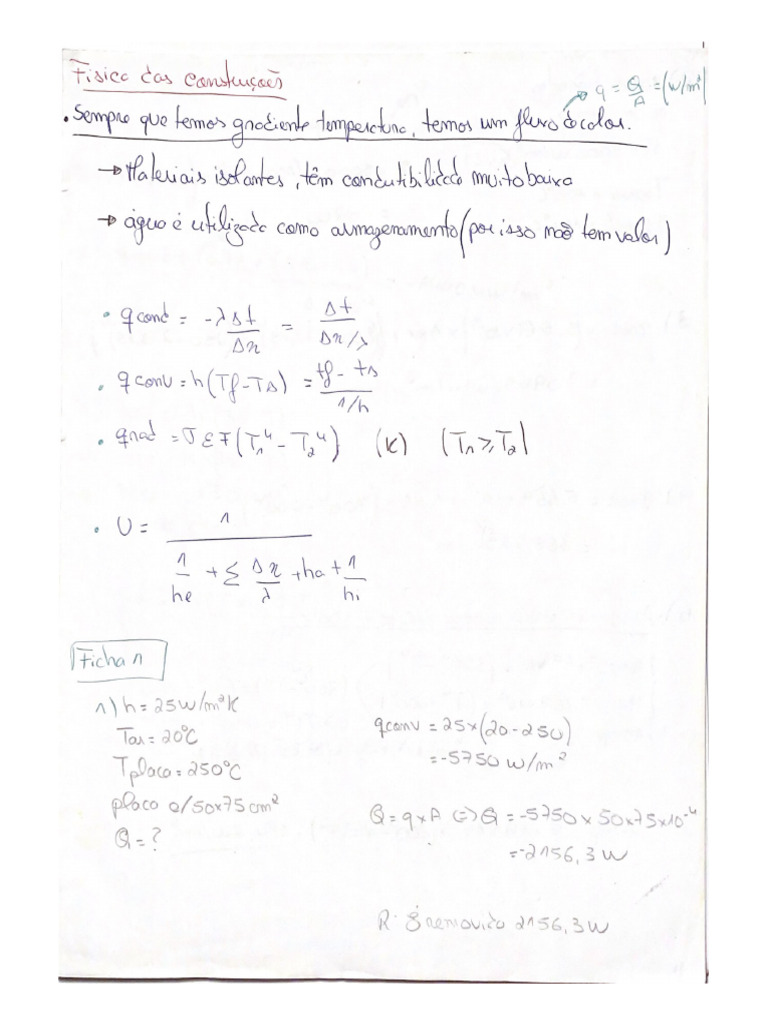 Física das Construções
q = Q/A = (W/m²)
• Sempre que temos gradiente temperatura, temos um fluxo de calor.
→ Materiais isolantes, têm condutibilidade muito baixa
→ água é utilizada como armazenamento (por isso não tem valor)
• qcond = -λΔt/Δx = Δt/(Δx/λ)
• qconv = h(Tf-Ts) = (tf-ts)/(1/h)
• qrad = σεF(T₁⁴-T₂⁴) (K) (T₁≥T₂)
• U = 1/(1/he + Σ Δx/λ + ha + 1/hi)
Ficha 1
1) h = 25 W/m²K
Tar = 20°C
Tplaca = 250°C
placa a/50x75 cm²
Q = ?
qconv = 25x(20-250)
= -5750 W/m²
Q = q x A <=> Q = -5750 x 50x75x10⁻⁴
= -2156,3 W
R: É removido 2156,3 W